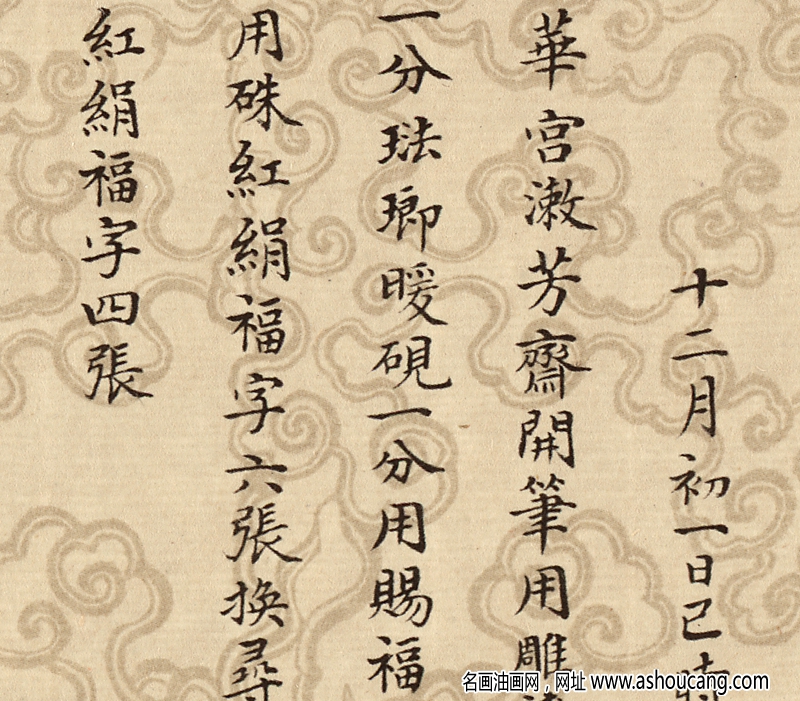 十二月初一日已時
華宮漱芳齋開筆用雕
一分琺瑯暖硯一分用賜福
用硃紅絹福字六張換尋
紅絹福字四張
名画油画网，网址 www.ashoucang.com